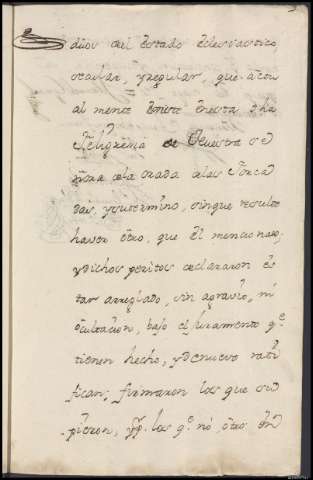 duos del Estado eclesiastico
secular, y regular, que actu
almente existe en esta dha
Feligresia de Nuestra Se
ñora de la Orada de las
das, y su termino, sin que resulte
haver otro, que el mencionado,
y dichos peritos declararon es
tar arreglado, sin agravio, ni
ocultacion, bajo el Juramento q.e
tienen hecho, y de nuevo rati
fican; firmaron los que su
pieron, y p.r los q.e no, otro en